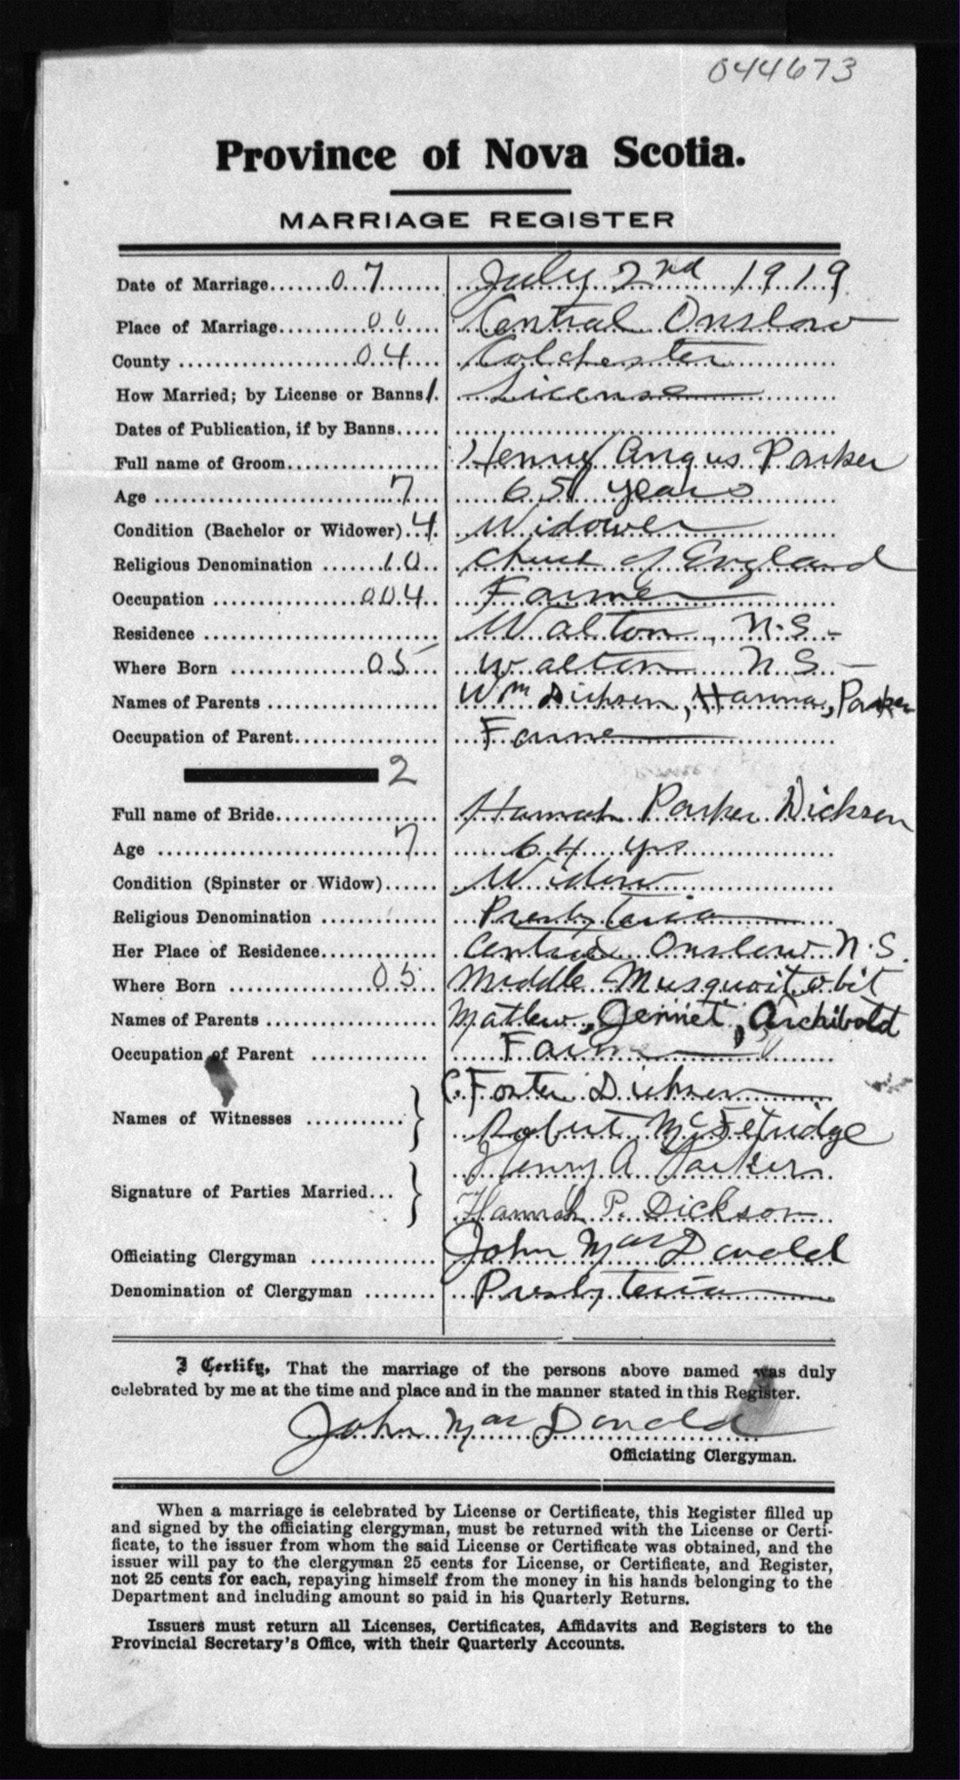 044673
Province of Nova Scotia.
MARRIAGE REGISTER
Date of Marriage.......0..7........ July 2nd 1919
Place of Marriage..........00.... Central Onslow
County ....................04.... Colchester
How Married; by License or Banns 1. License
Dates of Publication, if by Banns.....
Full name of Groom.................. Henry Angus Parker
Age ..........................7.... 65 years
Condition (Bachelor or Widower)..4. Widower
Religious Denomination .......10.. Church of England
Occupation .................004.. Farmer
Residence ........................... Walton, N.S.-
Where Born ................05 Walton N.S.-
Names of Parents .................... Wm Dickson, Hanna, Parker
Occupation of Parent................. Farmer
2
Full name of Bride................... Hannah Parker Dickson
Age ..........................7... 64 yrs
Condition (Spinster or Widow)...... Widow
Religious Denomination ............. Presbyteria
Her Place of Residence............. Central Onslow N.S.
Where Born .................05... Middle Musquoitobit
Names of Parents .................... Matlew, Jennet, Archibold
Occupation of Parent ............. Farmer
C. Foster Dickson
Names of Witnesses ...........} Robert McFetridge
Henry A Parker
Signature of Parties Married...}
Hannah P. Dickson
Officiating Clergyman .............. John MacDonald
Denomination of Clergyman ........ Presbyteria
I Certify, That the marriage of the persons above named was duly
celebrated by me at the time and place and in the manner stated in this Register.
John MacDonald
Officiating Clergyman.
When a marriage is celebrated by License or Certificate, this Register filled up
and signed by the officiating clergyman, must be returned with the License or Certi-
ficate, to the issuer from whom the said License or Certificate was obtained, and the
issuer will pay to the clergyman 25 cents for License, or Certificate, and Register,
not 25 cents for each, repaying himself from the money in his hands belonging to the
Department and including amount so paid in his Quarterly Returns.
Issuers must return all Licenses, Certificates, Affidavits and Registers to the
Provincial Secretary's Office, with their Quarterly Accounts.